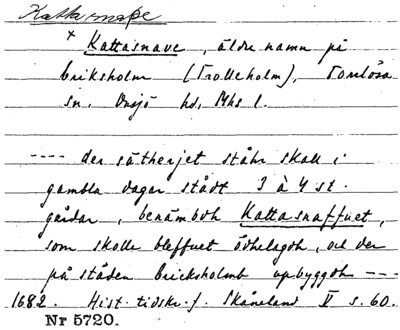 Kattasnape
× Kattasnave, äldre namn på
Eriksholm (Trolleholm), Torrlösa
sn. Onsjö hd, Mhs l.
---- der sätherjet ståhr skall i
gambla dagar stådt 3 à 4 st.
gårdar, benämbdh Kattasnaffuet,
som skolle bleffuet ödhelagdh, och der
på ståden Ericksholmb upbyggdh ---
1682. Hist. tidskr. f. Skåneland V s. 60.
Nr 5720.